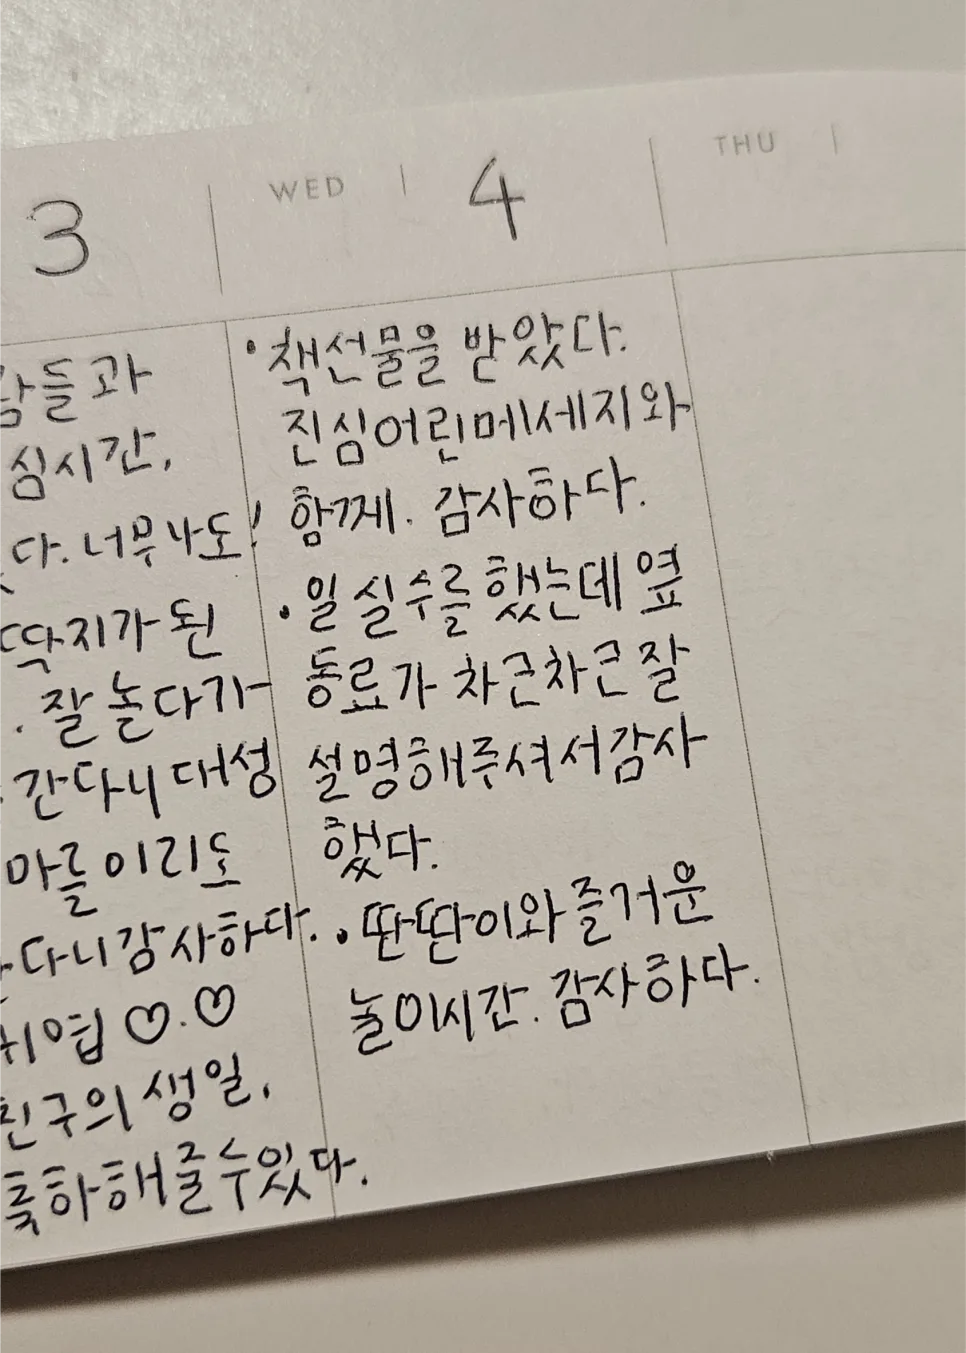 3
람들과
심시간.
다. 너무나도!
딱지가 된
. 잘 놀다가
간다니 대성
마를 이리도
다니 감사하다.
귀엽♡.♡
친구의 생일.
축하해줄수있다.
WED 4
• 책선물을 받았다.
진심어린메세지와
함께. 감사하다.
• 일 실수를 했는데 옆
동료가 차근차근 잘
설명해주셔서감사
했다.
• 딴딴이와 즐거운
놀이시간. 감사하다.
THU